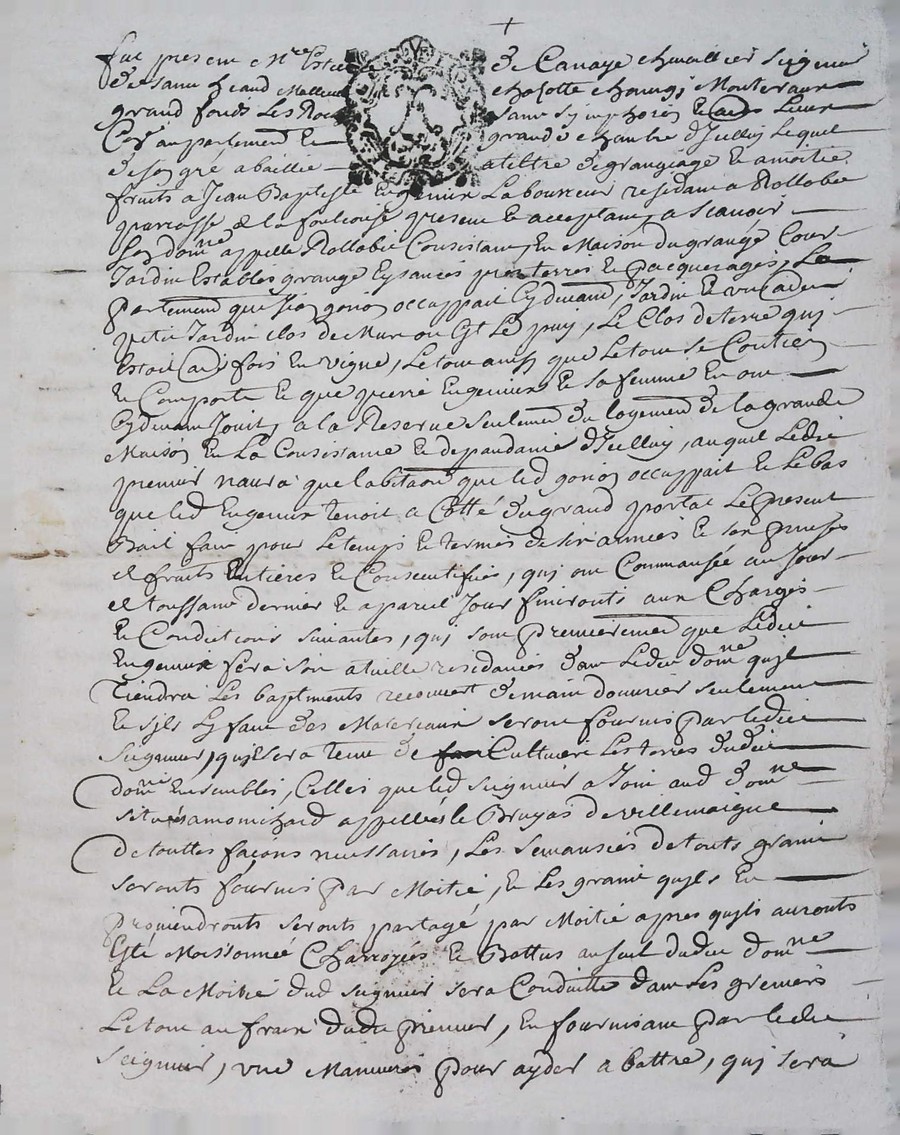 fut presens Mre Estie de Canaye chevallier Seigneur
de chasotte chaurgi Montereaux
grand fonds Les Roc Saint Sinphorien et autres Lieux
Cer au parlement en grande chambre d'Icelluy Lequel
de son gré a baillié a tiltre de grangiage et a moitie
fruits a Jean Baptiste Eugenier Laboureur residant a Rollobie
parroisse de la fouleouse present et acceptant, a scavoir
Son domne appellé Rollobie Consistant En Maison du granger Cour
Jardin Estables grange Eysances prez terres et pacquerages, La
partement que Jean gonon occuppoit Cydevant, Jardin et un autre
petit Jardin clos de Mur ou Est Le puy, Le Clos de terre qui
Estoit autrefois En vigne, Le tout ainsy que Le tout se Contien
Et Comporte Et que pierre Eugenier Et sa femme En ont
Cydevant Jouit, a la Reserve seulement du logement de la grande
Maison En La Consistance Et dependance d'Icelluy, auquel Ledit
premier n'aura que labitaon que led gonon occuppoit Et Le bas
que led Eugenier tenoit a Cotté du grand portal Le present
Bail fait pour Le temps Et termes de six années Et six prises
et fruits Entieres Et Consecutifves, qui ont Commansée au Jour
et toussaint dernier Et a pareil Jour finironts aux Charges
Et Conditions suivantes, qui sont premierement que Ledit
Eugenier fera son atuelle residance dans Ledit domne quil
Tiendra Les baptiments recouvert de main douvrier seulement
Et s'ils y faut des Matereaux seront fournis par Ledit
Seigneur, quil sera tenu de Cultiver Les terres dudit
domne Ensembles, Celles que led Seigneur a Joint aud domne
situés a momichard appellées le Bruyas de villemaigne
De touttes façons necessaires, Les Semansées de touts grains
seronts fournis par Moitié, Et Les grains quils En
proviendronts seronts partagé par Moitié apres quils auronts
Esté Moissonnée Charroyés Et Battus au suel dudit domne
Et La Moitié dud Seigneur sera Conduitte dans Les greniers
Le tout au frais dudit premier, En fournissant par Ledit
Seigneur, une Manuvre pour ayder a battre, qui sera